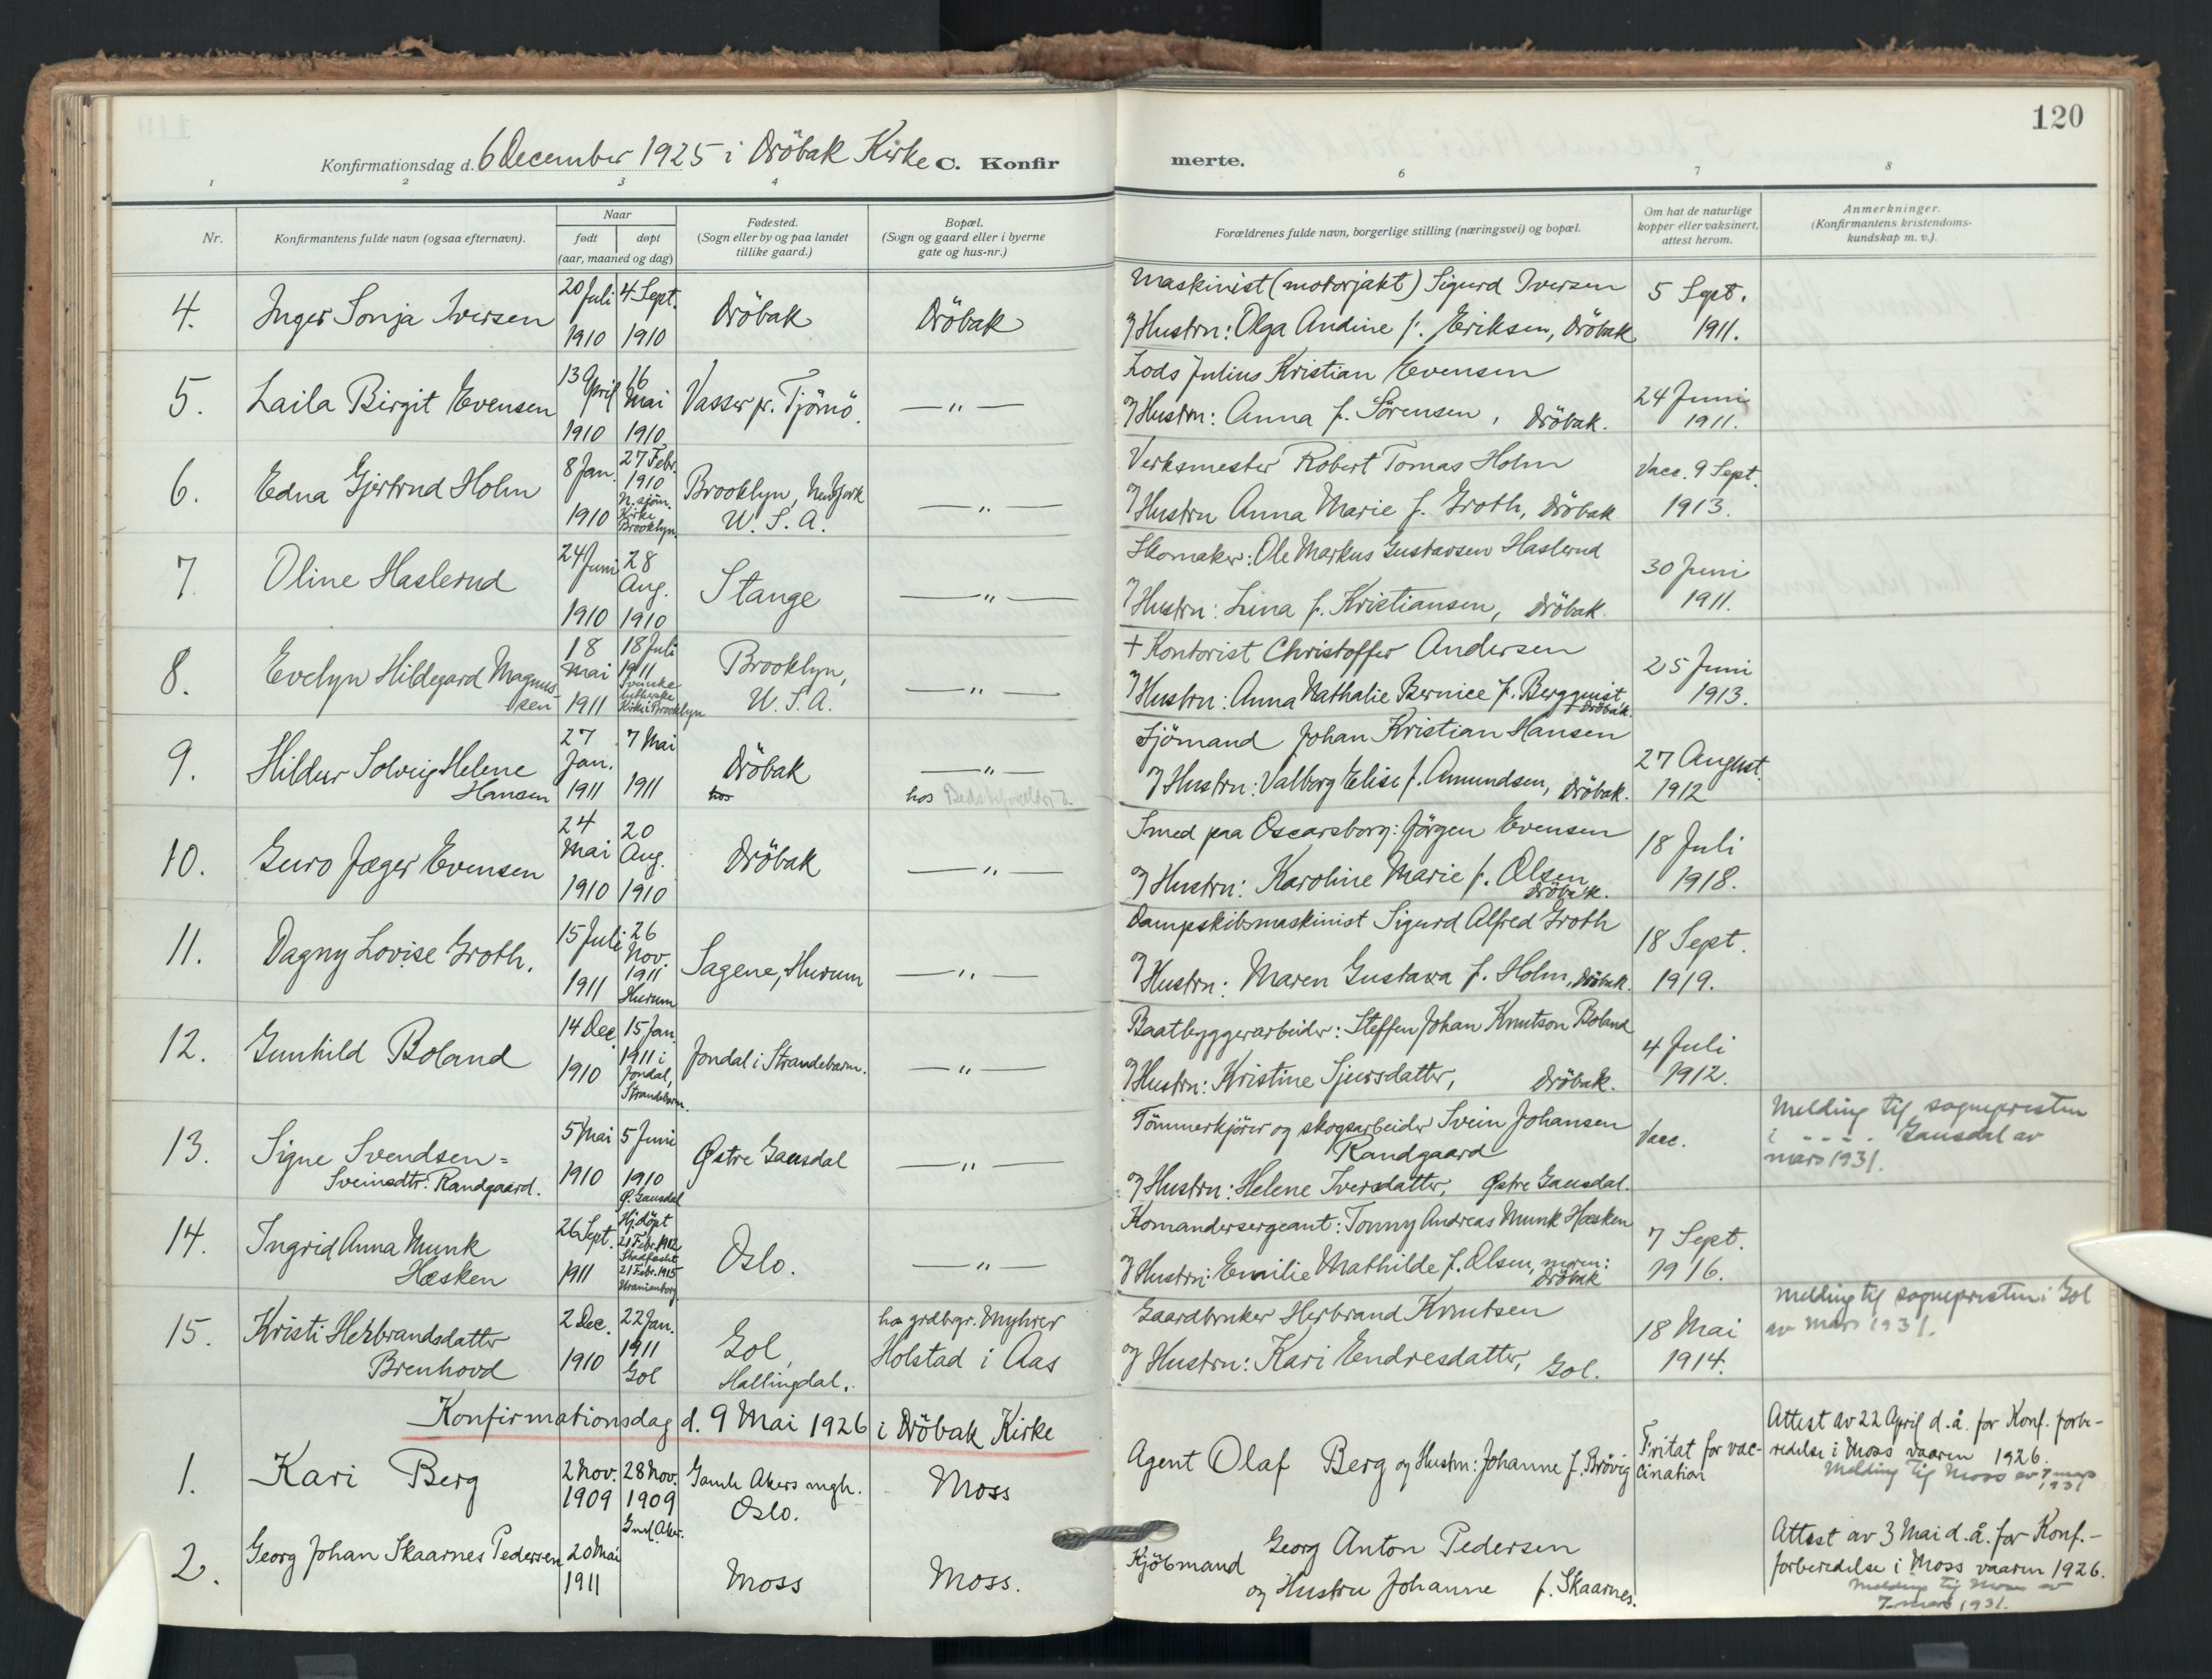 120
Konfirmationsdag d. 6 December 1925 i Dröbak Kirke C. Konfirmerte.
1 2 3 4 6 7 8
Nr.
Konfirmantens fulde navn (ogsaa efternavn).
Naar
født
døpt
(aar, maaned og dag)
Fødested.
(Sogn eller by og paa landet
tillike gaard.)
Bopæl.
(Sogn og gaard eller i byerne
gate og hus-nr.)
Forældrenes fulde navn, borgerlige stilling (næringsvei) og bopæl.
Om hat de naturlige
kopper eller vaksinert,
attest herom.
Anmerkninger.
(Konfirmantens kristendoms-
kundskap m. v.).
4. Inger Sonja Iversen
20 Juli 1910
4 Sept. 1910
Dröbak
Dröbak
Maskinist (motorjakt) Sigurd Iversen
og Hustru: Olga Andine f. Eriksen, Dröbak
5 Sept.
1911.
5. Laila Birgit Evensen
13 April 1910
16 Mai 1910
Vasser pr. Tjömö.
— " —
Lods Julius Kristian Evensen
og Hustru: Anna f. Sörensen, Dröbak.
24 Juni
1911.
6. Edna Gjertrud Holm
8 Jan. 1910
27 Febr.
1910
N. sjöm.
Kirke
Brooklyn.
Brooklyn, New York
U. S. A.
— " —
Verksmester Robert Tomas Holm
og Hustru Anna Marie f. Groth, Dröbak
Vacc. 9 Sept.
1913.
7. Oline Haslerud
24 Juni 1910
28 Aug. 1910
Stange
— " —
Skomaker: Ole Markus Gustavsen Haslerud
og Hustru: Lina f. Kristiansen, Dröbak.
30 Juni
1911.
8. Evelyn Hildegard Magnus-
sen
18 Mai 1911
18 Juli
1911
Svenske
lutherske
Kirke i Brooklyn
Brooklyn,
U. S. A.
— " —
+ Kontorist Christoffer Andersen
og Hustru: Anna Nathalie Bernice f. Bergquist
+ Dröbak.
25 Juni
1913.
9. Hildur Solveig Helene
Hansen
27 Jan. 1911
7 Mai 1911
Dröbak
hos
— " —
hos
Sjömand Johan Kristian Hansen
og Hustru: Valborg Elise f. Amundsen, Dröbak.
27 August
1912
10. Guro Jæger Evensen
24 Mai 1910
20 Aug. 1910
Dröbak
— " —
Smed paa Oscarsborg: Jörgen Evensen
og Hustru: Karoline Marie f. Olsen
Dröbak.
18 Juli
1918.
11. Dagny Lovise Groth.
15 Juli 1911
26 Nov.
1911
Hurum
Sagene, Hurum
— " —
Dampskibsmaskinist Sigurd Alfred Groth
og Hustru: Maren Gustava f. Holm, Dröbak.
18 Sept.
1919.
12. Gunhild Boland
14 Dec. 1910
15 Jan.
1911 i
Jondal,
Strandebarm.
Jondal i Strandebarm.
— " —
Baatbyggerarbeider: Steffen Johan Knutson Boland
og Hustru: Kristine Sjursdatter, Dröbak.
4 Juli
1912.
13. Signe Svendsen =
Sveinsdtr. Randgaard.
5 Mai 1910
5 Juni
1910
Ø. Gausdal
Østre Gausdal
— " —
Tömmerkjörer og skogsarbeider Svein Johansen
Randgaard
og Hustru: Helene Iversdatter, Østre Gausdal.
Vacc.
Melding til sognepresten
i - - - - Gausdal av
mars 1931.
14. Ingrid Anna Munk
Hæsken
26 Sept. 1911
Hj. döpt
21 Febr. 1912
Stadfæstet
21 Febr. 1915
Uranienborg
Oslo.
— " —
Komandersergeant: Tonny Andreas Munk Hæsken
og Hustru: Emilie Mathilde f. Olsen, moren:
Dröbak
7 Sept.
1916.
15. Kristi Herbrandsdatter
Brenhovd
2 Dec. 1910
22 Jan.
1911
Gol
Gol,
Hallingdal.
hos grdbrgr. Myhrer
Holstad i Aas
Gaardbruker Herbrand Knutsen
og Hustru: Kari Endresdatter, Gol.
18 Mai
1914.
Melding til sognepresten i Gol
av mars 1931.
Konfirmationsdag d. 9 Mai 1926 i Dröbak Kirke
1. Kari Berg
2 Nov. 1909
28 Nov. 1909
Gml. Aker.
Gamle Akers mgh.
Oslo.
Moss
Agent Olaf Berg og Hustru: Johanne f. Brövig
Fritat for vac-
cination
Attest av 22 April d. å. for Konf. forbe-
redelse i Moss vaaren 1926.
Melding til Moss av 7 mars
1931
2. Georg Johan Skaarnes Pedersen
20 Mai
1911
Moss
Moss.
Kjöbmand Georg Anton Pedersen
og Hustru Johanne f. Skaarnes.
Attest av 3 Mai d. å. for Konf.-
forberedelse i Moss vaaren 1926.
Melding til Moss av
7 mars 1931.